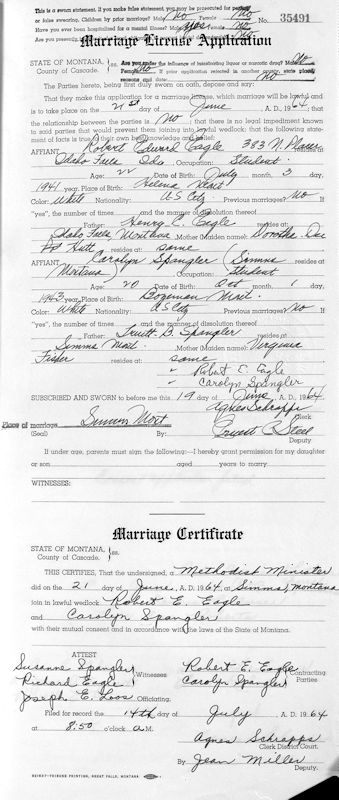 This is a sworn statement. If you make false statement, you may be prosecuted for perjury
or false swearing. Children by prior marriage? Male No Female No No. 35491
Have you ever been hospitalized for a mental illness? Male Yes Female No
Are you presently No
Marriage License Application
STATE OF MONTANA, } ss. Are you under the influence of intoxicating liquor or narcotic drug? Male No
County of Cascade. Female No If prior application rejected in another state, place,
reasons and date No
The Parties hereto, being first duly sworn on oath, depose and say:
That they make this application for a marriage license, which marriage will be lawful and
is to take place on the 21st day of June A. D. 1964; that
the relationship between the parties is No; that there is no legal impediment known
to said parties that would prevent them joining into lawful wedlock; that the following state-
ment of facts is true of their own knowledge and belief:
AFFIANT Robert Edward Eagle resides at 383 N.
Idaho Falls Ida. Occupation: Student
Age: 22 Date of Birth: July 3 day,
1941 year. Place of Birth: Helena Mont
Color: White Nationality: US Ctz Previous marriages? No If
"yes", the number of times and the manner of dissolution thereof
Father: Henry C. Eagle resides at:
Idaho Falls Montana Mother (Maiden name): Dorothea Dee
resides at: same
AFFIANT Carolyn Spangler resides at: Simms
Montana Occupation: Student
Age: 20 Date of Birth: Oct 1 day,
1943 year. Place of Birth: Bozeman Mont.
Color: White Nationality: US Ctz Previous marriages? No If
"yes", number of times and the manner of dissolution thereof
Father: Truitt D Spangler resides at
Simms Mont. Mother (Maiden name): Virginia
Fisher resides at: same
" Robert E. Eagle
" Carolyn Spangler
SUBSCRIBED AND SWORN to before me this 19 day of June, A. D. 1964.
Agnes Schrapps
Clerk
Place of marriage Simms Mont
(Seal) By: Steel
Deputy
If under age, parents must sign the following:—I hereby grant permission for my daughter
or son aged years to marry
WITNESSES:
Marriage Certificate
STATE OF MONTANA, } ss.
County of Cascade.
THIS CERTIFIES, That the undersigned, a Methodist Minister
did on the 21 day of June, A. D. 1964, at Simms, Montana
join in lawful wedlock Robert E. Eagle
and Carolyn Spangler
with their mutual consent and in accordance with the laws of the State of Montana.
ATTEST
Susanne Spangler } Witnesses
Richard Eagle
Joseph E. Loos Officiating.
Robert E. Eagle } Contracting Parties
Carolyn Spangler
Filed for record the 14th day of July, A. D. 1964
at 8:50 o'clock A M.
Agnes Schrapps
Clerk District Court.
By Jean Miller
Deputy.
HEIKEY-TRIBUNE PRINTING, GREAT FALLS, MONTANA